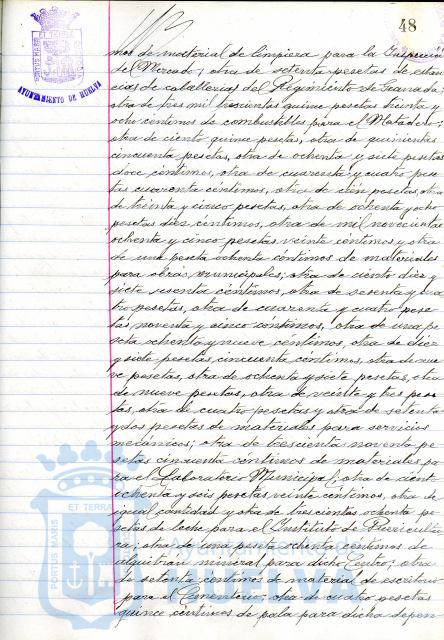 48
PORTUS MARIS
AYUNTAMIENTO DE HUELVA
mos de material de limpieza para la Inspección
del Mercado; otra de setenta pesetas de estan
cias de caballerías del Regimiento de Granada;
otra de tres mil trescientas quince pesetas treinta y
ocho céntimos de combustibles para el Matadero;
otra de ciento quince pesetas, otra de quinientas
cincuenta pesetas, otra de ochenta y siete pesetas
doce céntimos, otra de cuarenta y cuatro pese
tas cuarenta céntimos, otra de cien pesetas, otra
de treinta y cinco pesetas, otra de ochenta y ocho
pesetas diez céntimos, otra de mil novecientas
ochenta y cinco pesetas veinte céntimos y otra
de una peseta ochenta céntimos de materiales
para obras municipales; otra de ciento diez y
siete sesenta céntimos, otra de sesenta y cua
tro pesetas, otra de cuarenta y cuatro pese
tas noventa y cinco céntimos, otra de una pe
seta ochenta y nueve céntimos, otra de diez
y siete pesetas cincuenta céntimos, otra de nue
ve pesetas, otra de ochenta y siete pesetas, otra
de nueve pesetas, otra de veinte y tres pese
tas, otra de cuatro pesetas y otra de setenta
y dos pesetas de materiales para servicios
mecánicos; otra de trescientas noventa pe
setas cincuenta céntimos de materiales pa
ra el Laboratorio Municipal; otra de ciento
ochenta y seis pesetas veinte céntimos, otra de
igual cantidad y otra de trescientas ochenta pe
setas de leche para el Instituto de Puericultu
ra; otra de una peseta ochenta céntimos de
alquitrán mineral para dicho Centro; otra
de setenta céntimos de material de escritorio
para el Cementerio; otra de cuatro pesetas
quince céntimos de pala para dicha depen
PORTUS MARIS
ET TERRAE
Ayuntamiento de